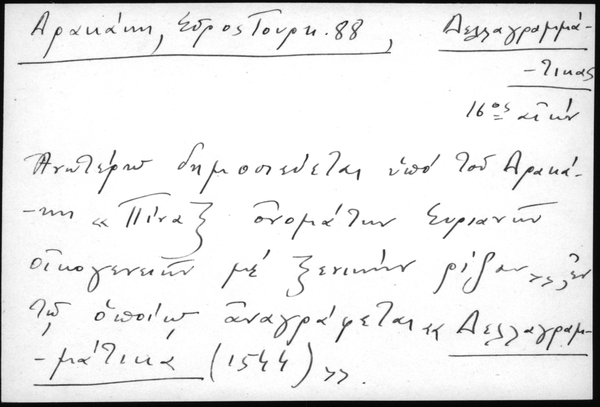 Δρακάκη, Σῦρος Τουρκ. 88, Δελλαγραμμά-
-τικας
16ος αἰών
Ἀνωτέρω δημοσιεύεται ὑπό τοῦ Δρακά-
-κη «Πίναξ ὀνομάτων Συριανῶν
οἰκογενειῶν μέ ξενικήν ρίζαν», ἐν
τῷ ὁποίῳ ἀναγράφεται «Δελλαγραμ-
-μάτικα (1544)».